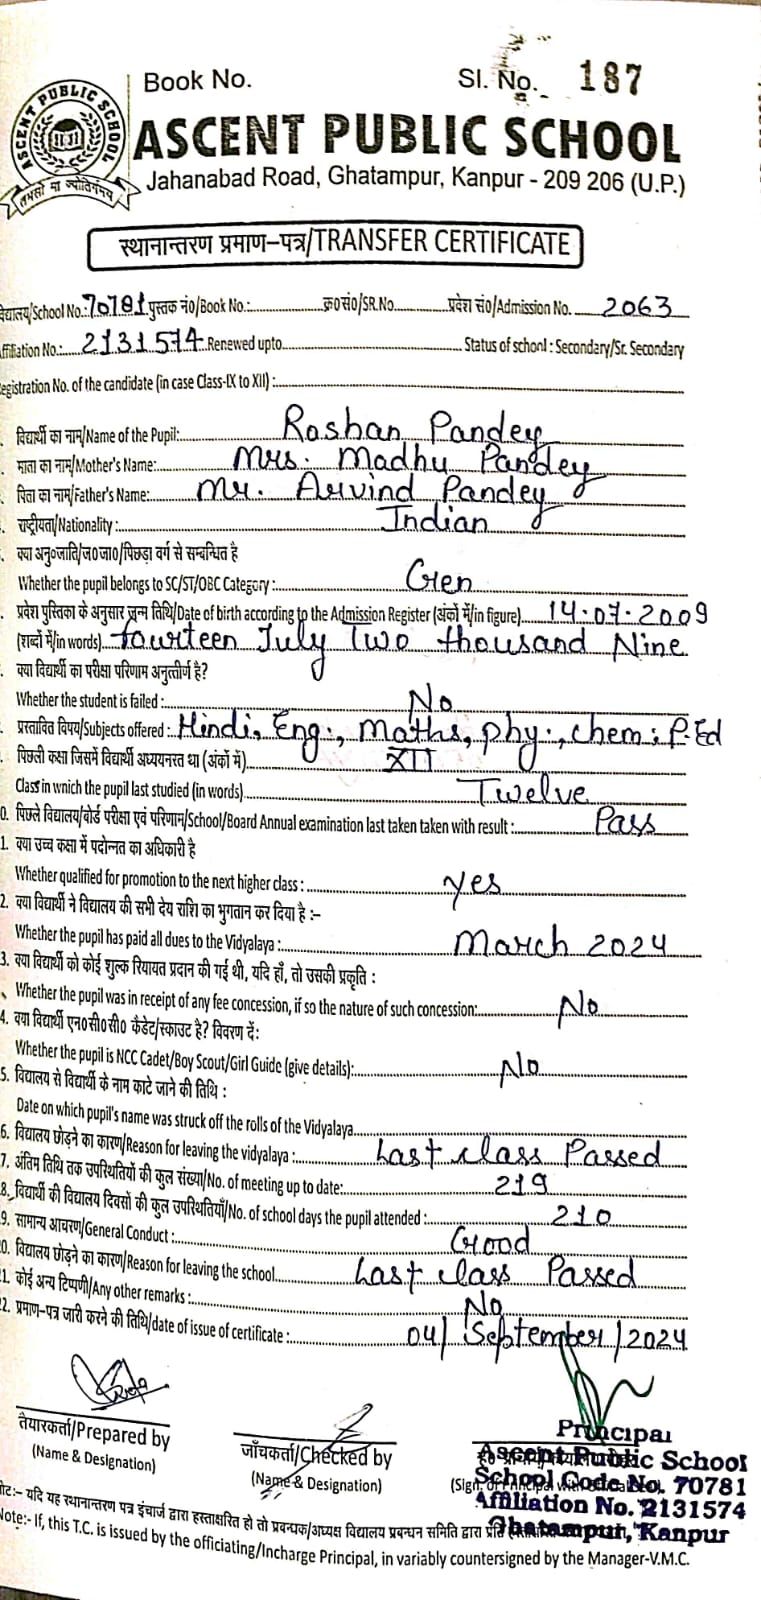 Book No.
Sl. No. 187
ASCENT PUBLIC SCHOOL
तमसो मा ज्योतिर्गमय
ASCENT PUBLIC SCHOOL
Jahanabad Road, Ghatampur, Kanpur - 209 206 (U.P.)
स्थानान्तरण प्रमाण-पत्र/TRANSFER CERTIFICATE
विद्यालय/School No.: 70781 पुस्तक नं०/Book No.: क्र०सं०/SR.No. प्रवेश सं०/Admission No. 2063
Affiliation No.: 2131574 Renewed upto Status of school : Secondary/Sr. Secondary
egistration No. of the candidate (in case Class-IX to XII) :
विद्यार्थी का नाम/Name of the Pupil: Roshan Pandey
माता का नाम/Mother's Name: Mrs. Madhu Pandey
पिता का नाम/Father's Name: Mr. Arvind Pandey
राष्ट्रीयता/Nationality : Indian
क्या अनु०जाति/ज०जा०/पिछड़ा वर्ग से सम्बन्धित है
Whether the pupil belongs to SC/ST/OBC Category : Gen
प्रवेश पुस्तिका के अनुसार जन्म तिथि/Date of birth according to the Admission Register (अंकों में/in figure) 14.07.2009
(शब्दों में/in words) fourteen July Two thousand Nine
क्या विद्यार्थी का परीक्षा परिणाम अनुत्तीर्ण है?
Whether the student is failed : No
प्रस्तावित विषय/Subjects offered : Hindi, Eng., Maths, Phy., Chem; P.Ed
पिछली कक्षा जिसमें विद्यार्थी अध्ययनरत था (अंकों में) XII
Class in wnich the pupil last studied (in words) Twelve
0. पिछले विद्यालय/बोर्ड परीक्षा एवं परिणाम/School/Board Annual examination last taken taken with result : Pass
1. क्या उच्च कक्षा में पदोन्नत का अधिकारी है
Whether qualified for promotion to the next higher class : yes
2. क्या विद्यार्थी ने विद्यालय की सभी देय राशि का भुगतान कर दिया है :-
Whether the pupil has paid all dues to the Vidyalaya : March 2024
3. क्या विद्यार्थी को कोई शुल्क रियायत प्रदान की गई थी, यदि हाँ, तो उसकी प्रकृति :
Whether the pupil was in receipt of any fee concession, if so the nature of such concession: No
4. क्या विद्यार्थी एन०सी०सी० कैडेट/स्काउट है? विवरण दें:
Whether the pupil is NCC Cadet/Boy Scout/Girl Guide (give details): No
5. विद्यालय से विद्यार्थी के नाम काटे जाने की तिथि :
Date on which pupil's name was struck off the rolls of the Vidyalaya
6. विद्यालय छोड़ने का कारण/Reason for leaving the vidyalaya : Last class Passed
7. अंतिम तिथि तक उपस्थितियों की कुल संख्या/No. of meeting up to date: 219
8. विद्यार्थी की विद्यालय दिवसों की कुल उपस्थितियाँ/No. of school days the pupil attended : 210
9. सामान्य आचरण/General Conduct : Good
0. विद्यालय छोड़ने का कारण/Reason for leaving the school Last class Passed
1. कोई अन्य टिप्पणी/Any other remarks : No
2. प्रमाण-पत्र जारी करने की तिथि/date of issue of certificate : 04/September/2024
तैयारकर्ता/Prepared by
(Name & Designation)
जाँचकर्ता/Checked by
(Name & Designation)
Principal
Ascent Public School
School Code No. 70781
(Sign. of Principal
Affiliation No. 2131574
Ghatampur, Kanpur
नोट:- यदि यह स्थानान्तरण पत्र इंचार्ज द्वारा हस्ताक्षरित हो तो प्रबन्धक/अध्यक्ष विद्यालय प्रबन्धन समिति द्वारा
Note:- If, this T.C. is issued by the officiating/Incharge Principal, in variably countersigned by the Manager-V.M.C.